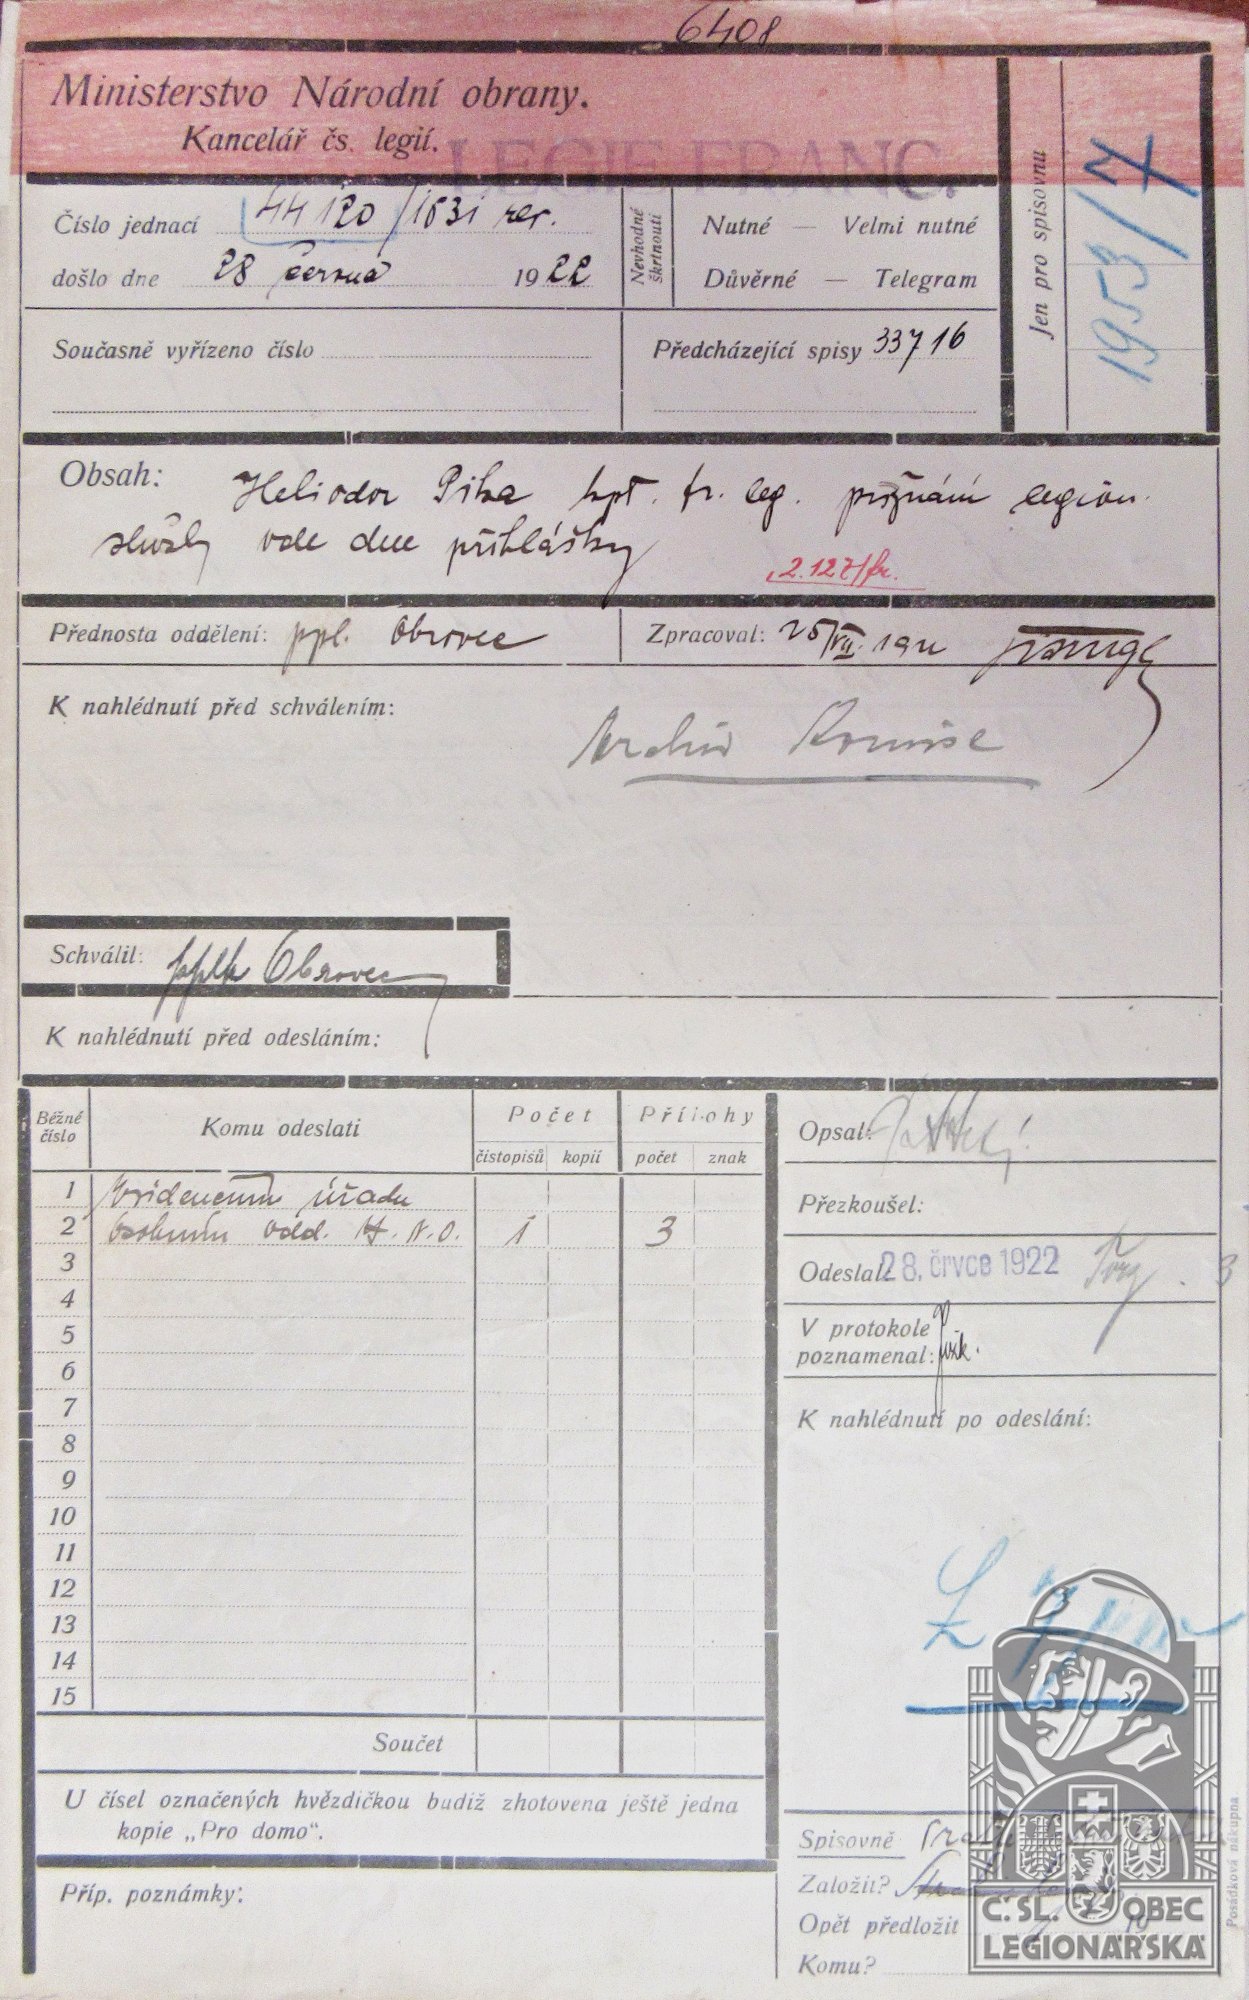 6408
Ministerstvo Národní obrany.
Kancelář čs. legií.
LEGIE FRANC.
Číslo jednací 44120/1631 res.
došlo dne 28 června 1922
Nevhodné škrtnouti
Nutné — Velmi nutné
Důvěrné — Telegram
Jen pro spisovnu
1953/7
Současně vyřízeno číslo
Předcházející spisy 33716
Obsah: Heliodor Pika hpt. fr. leg. přiznání legion.
služby ode dne přihlášky
2.127/fr.
Přednosta oddělení: ppl. Obrovec
Zpracoval: 25/VII. 1922
K nahlédnutí před schválením:
Archiv
Schválil: pplk Obrovec
K nahlédnutí před odesláním:
Běžné číslo
Komu odeslati
Počet
čistopisů kopií
Přílohy
počet znak
1 Evidenčnímu úřadu
2 Osobnímu odd. M. N. O. 1 3
3
4
5
6
7
8
9
10
11
12
13
14
15
Součet
U čísel označených hvězdičkou budiž zhotovena ještě jedna
kopie „Pro domo“.
Příp. poznámky:
Opsal:
Přezkoušel:
Odeslal: 28. črvce 1922
V protokole
poznamenal:
K nahlédnutí po odeslání:
Spisovně
Založit?
Opět předložit 19
Komu?
Posádková nákupna
Č. SL. OBEC
LEGIONÁŘSKÁ